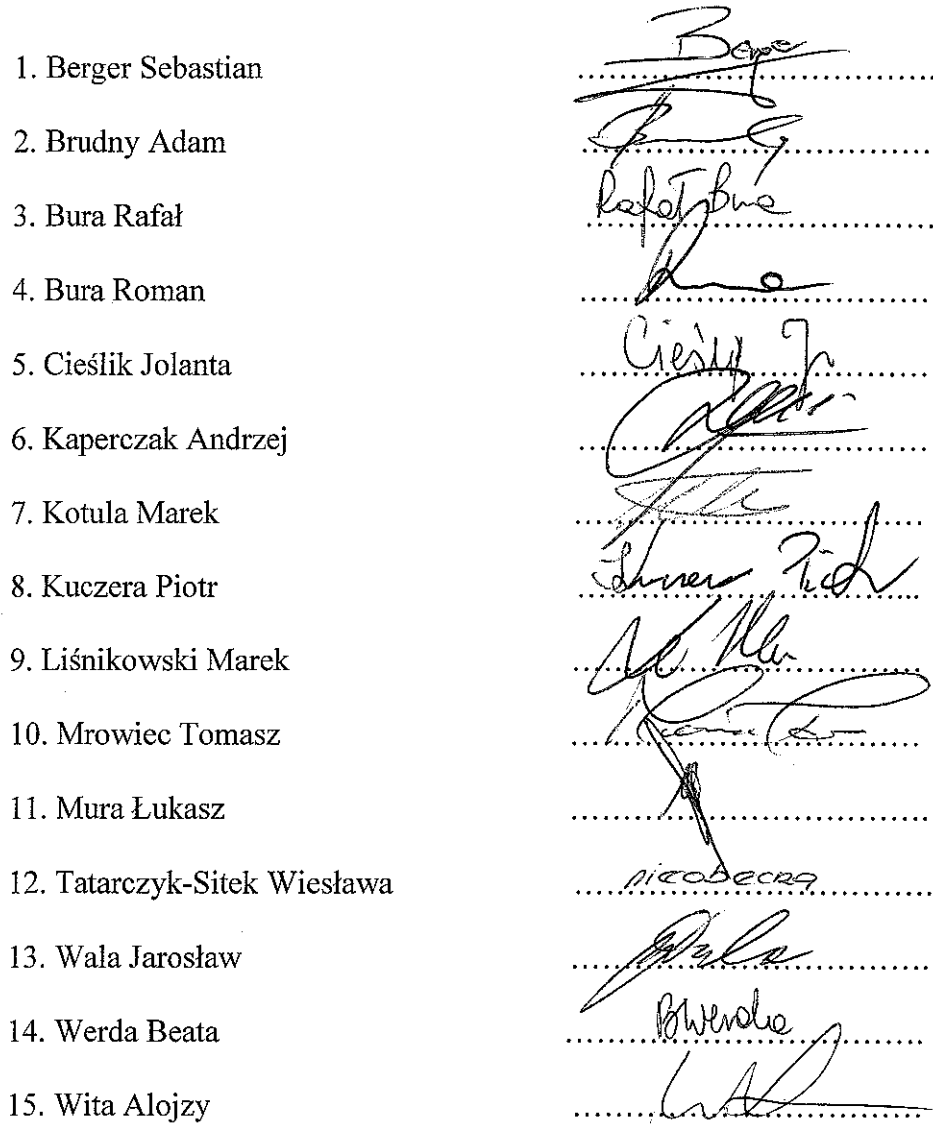 1. Berger Sebastian
2. Brudny Adam
3. Bura Rafał Rafał Bura
4. Bura Roman
5. Cieślik Jolanta Cieślik J
6. Kaperczak Andrzej
7. Kotula Marek
8. Kuczera Piotr Kuczera Piotr
9. Liśnikowski Marek
10. Mrowiec Tomasz
11. Mura Łukasz
12. Tatarczyk-Sitek Wiesława nieobecna
13. Wala Jarosław
14. Werda Beata BWerda
15. Wita Alojzy